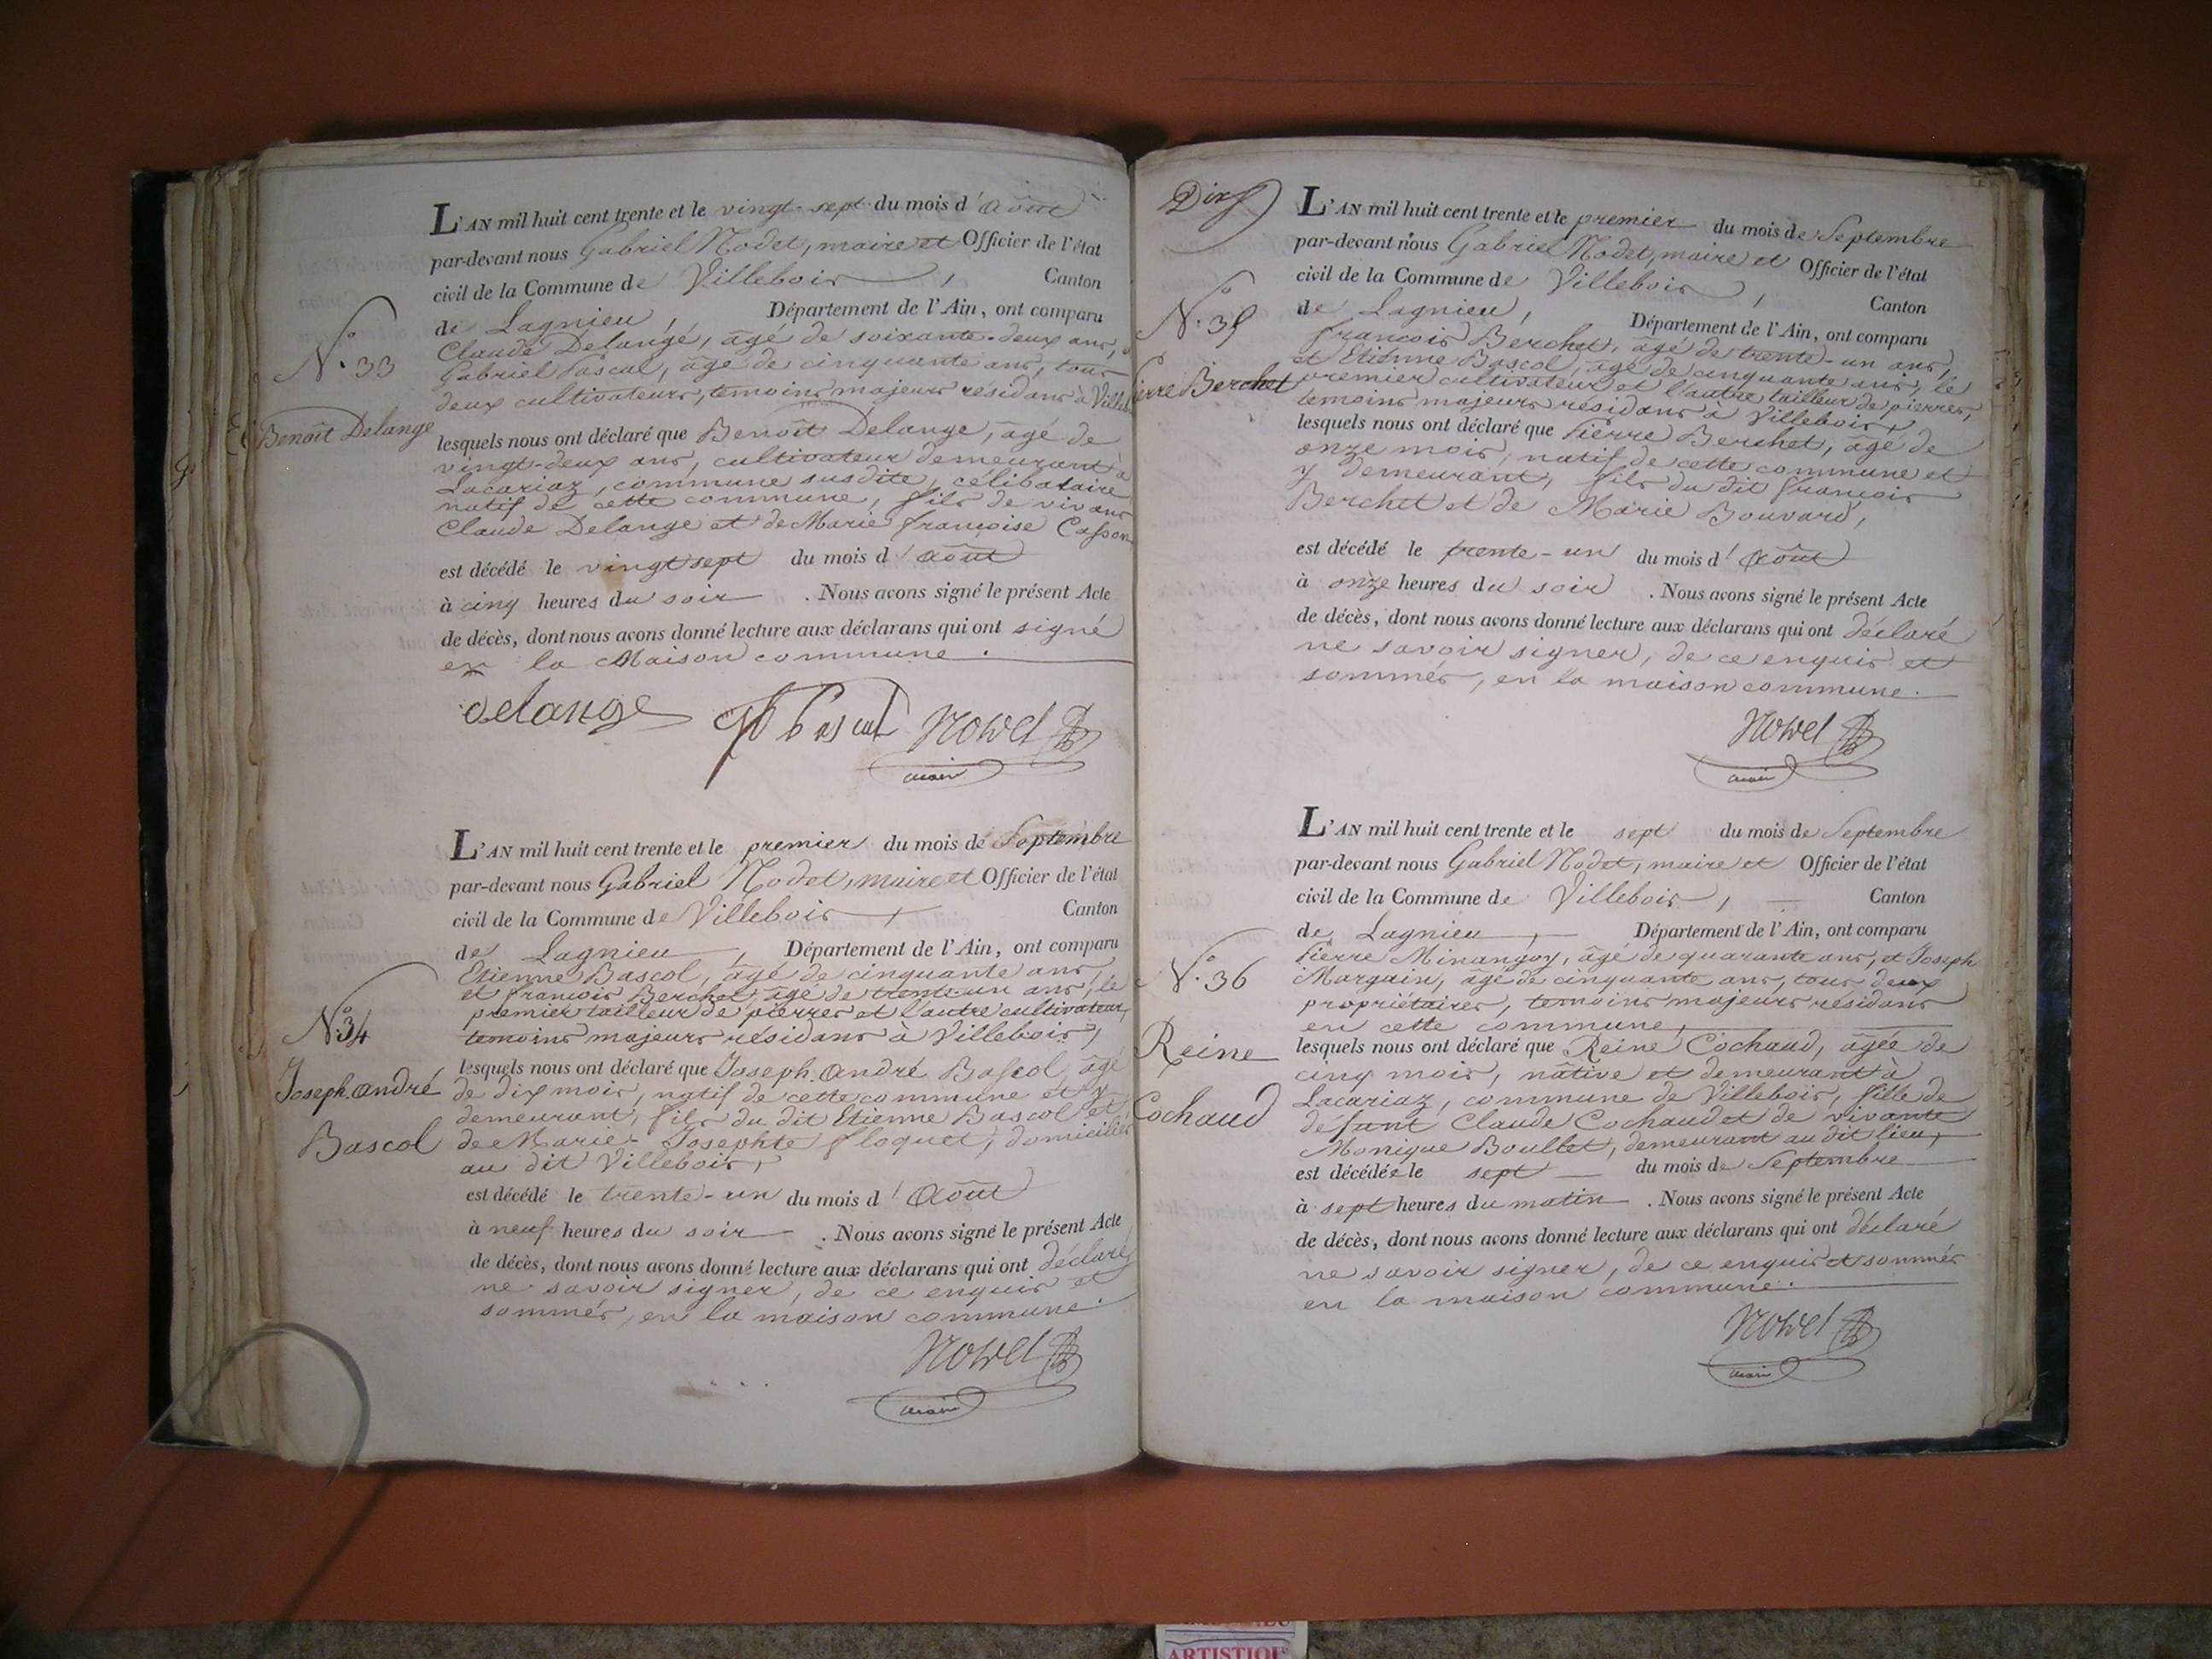 L'AN mil huit cent trente et le vingt-sept du mois d'août
par-devant nous Gabriel Nodet, maire et Officier de l'état
civil de la Commune de Villebois, Canton
de Lagnieu, Département de l'Ain, ont comparu
Claude Delange, âgé de soixante-deux ans,
Gabriel Pascal, âgé de cinquante ans, tous
deux cultivateurs, temoins majeurs résidans à
N.o 33
Benoît Delange
lesquels nous ont déclaré que Benoît Delange, âgé de
vingt-deux ans, cultivateur demeurant à
Lacariaz, commune susdite, célibataire
natif de cette commune, fils de vivans
Claude Delange et de Marie françoise
est décédé le vingt sept du mois d'août
à cinq heures du soir. Nous avons signé le présent Acte
de décès, dont nous avons donné lecture aux déclarans qui ont signé
en la Maison commune.
delange Pascal Nodet
maire
L'AN mil huit cent trente et le premier du mois de Septembre
par-devant nous Gabriel Nodet, maire et Officier de l'état
civil de la Commune de Villebois, Canton
de Lagnieu, Département de l'Ain, ont comparu
Etienne Bascol, âgé de cinquante ans,
et françois Berchet, âgé de trente-un ans, le
premier tailleur de pierres et l'autre cultivateur,
temoins majeurs résidans à Villebois,
N.o 34
Joseph-andré
Bascol
lesquels nous ont déclaré que Joseph-andré Bascol, âgé
de dix mois, natif de cette commune et y
demeurant, fils du dit Etienne Bascol et
de Marie-Josephte floquet, domiciliés
au dit Villebois,
est décédé le trente-un du mois d'août
à neuf heures du soir. Nous avons signé le présent Acte
de décès, dont nous avons donné lecture aux déclarans qui ont déclaré
ne savoir signer, de ce enquis et
sommés, en la maison commune.
Nodet
maire
Dix
L'AN mil huit cent trente et le premier du mois de Septembre
par-devant nous Gabriel Nodet, maire et Officier de l'état
civil de la Commune de Villebois, Canton
de Lagnieu, Département de l'Ain, ont comparu
françois Berchet, âgé de trente-un ans,
et Etienne Bascol, âgé de cinquante ans, le
premier cultivateur et l'autre tailleur de pierres,
temoins majeurs résidans à Villebois,
N.o 35
Pierre Berchet
lesquels nous ont déclaré que Pierre Berchet, âgé de
onze mois, natif de cette commune et
y demeurant, fils du dit françois
Berchet et de Marie Bouvard,
est décédé le trente-un du mois d'août
à onze heures du soir. Nous avons signé le présent Acte
de décès, dont nous avons donné lecture aux déclarans qui ont déclaré
ne savoir signer, de ce enquis et
sommés, en la maison commune.
Nodet
maire
L'AN mil huit cent trente et le sept du mois de Septembre
par-devant nous Gabriel Nodet, maire et Officier de l'état
civil de la Commune de Villebois, Canton
de Lagnieu, Département de l'Ain, ont comparu
Pierre Minangoy, âgé de quarante ans, et Joseph
Margain, âgé de cinquante ans, tous deux
propriétaires, temoins majeurs résidans
en cette commune,
N.o 36
Reine
Cochaud
lesquels nous ont déclaré que Reine Cochaud, âgée de
cinq mois, native et demeurant à
Lacariaz, commune de Villebois, fille de
defunt Claude Cochaud et de vivante
Monique Boullet, demeurant au dit lieu,
est décédée le sept du mois de Septembre
à sept heures du matin. Nous avons signé le présent Acte
de décès, dont nous avons donné lecture aux déclarans qui ont déclaré
ne savoir signer, de ce enquis et sommés
en la maison commune.
Nodet
maire